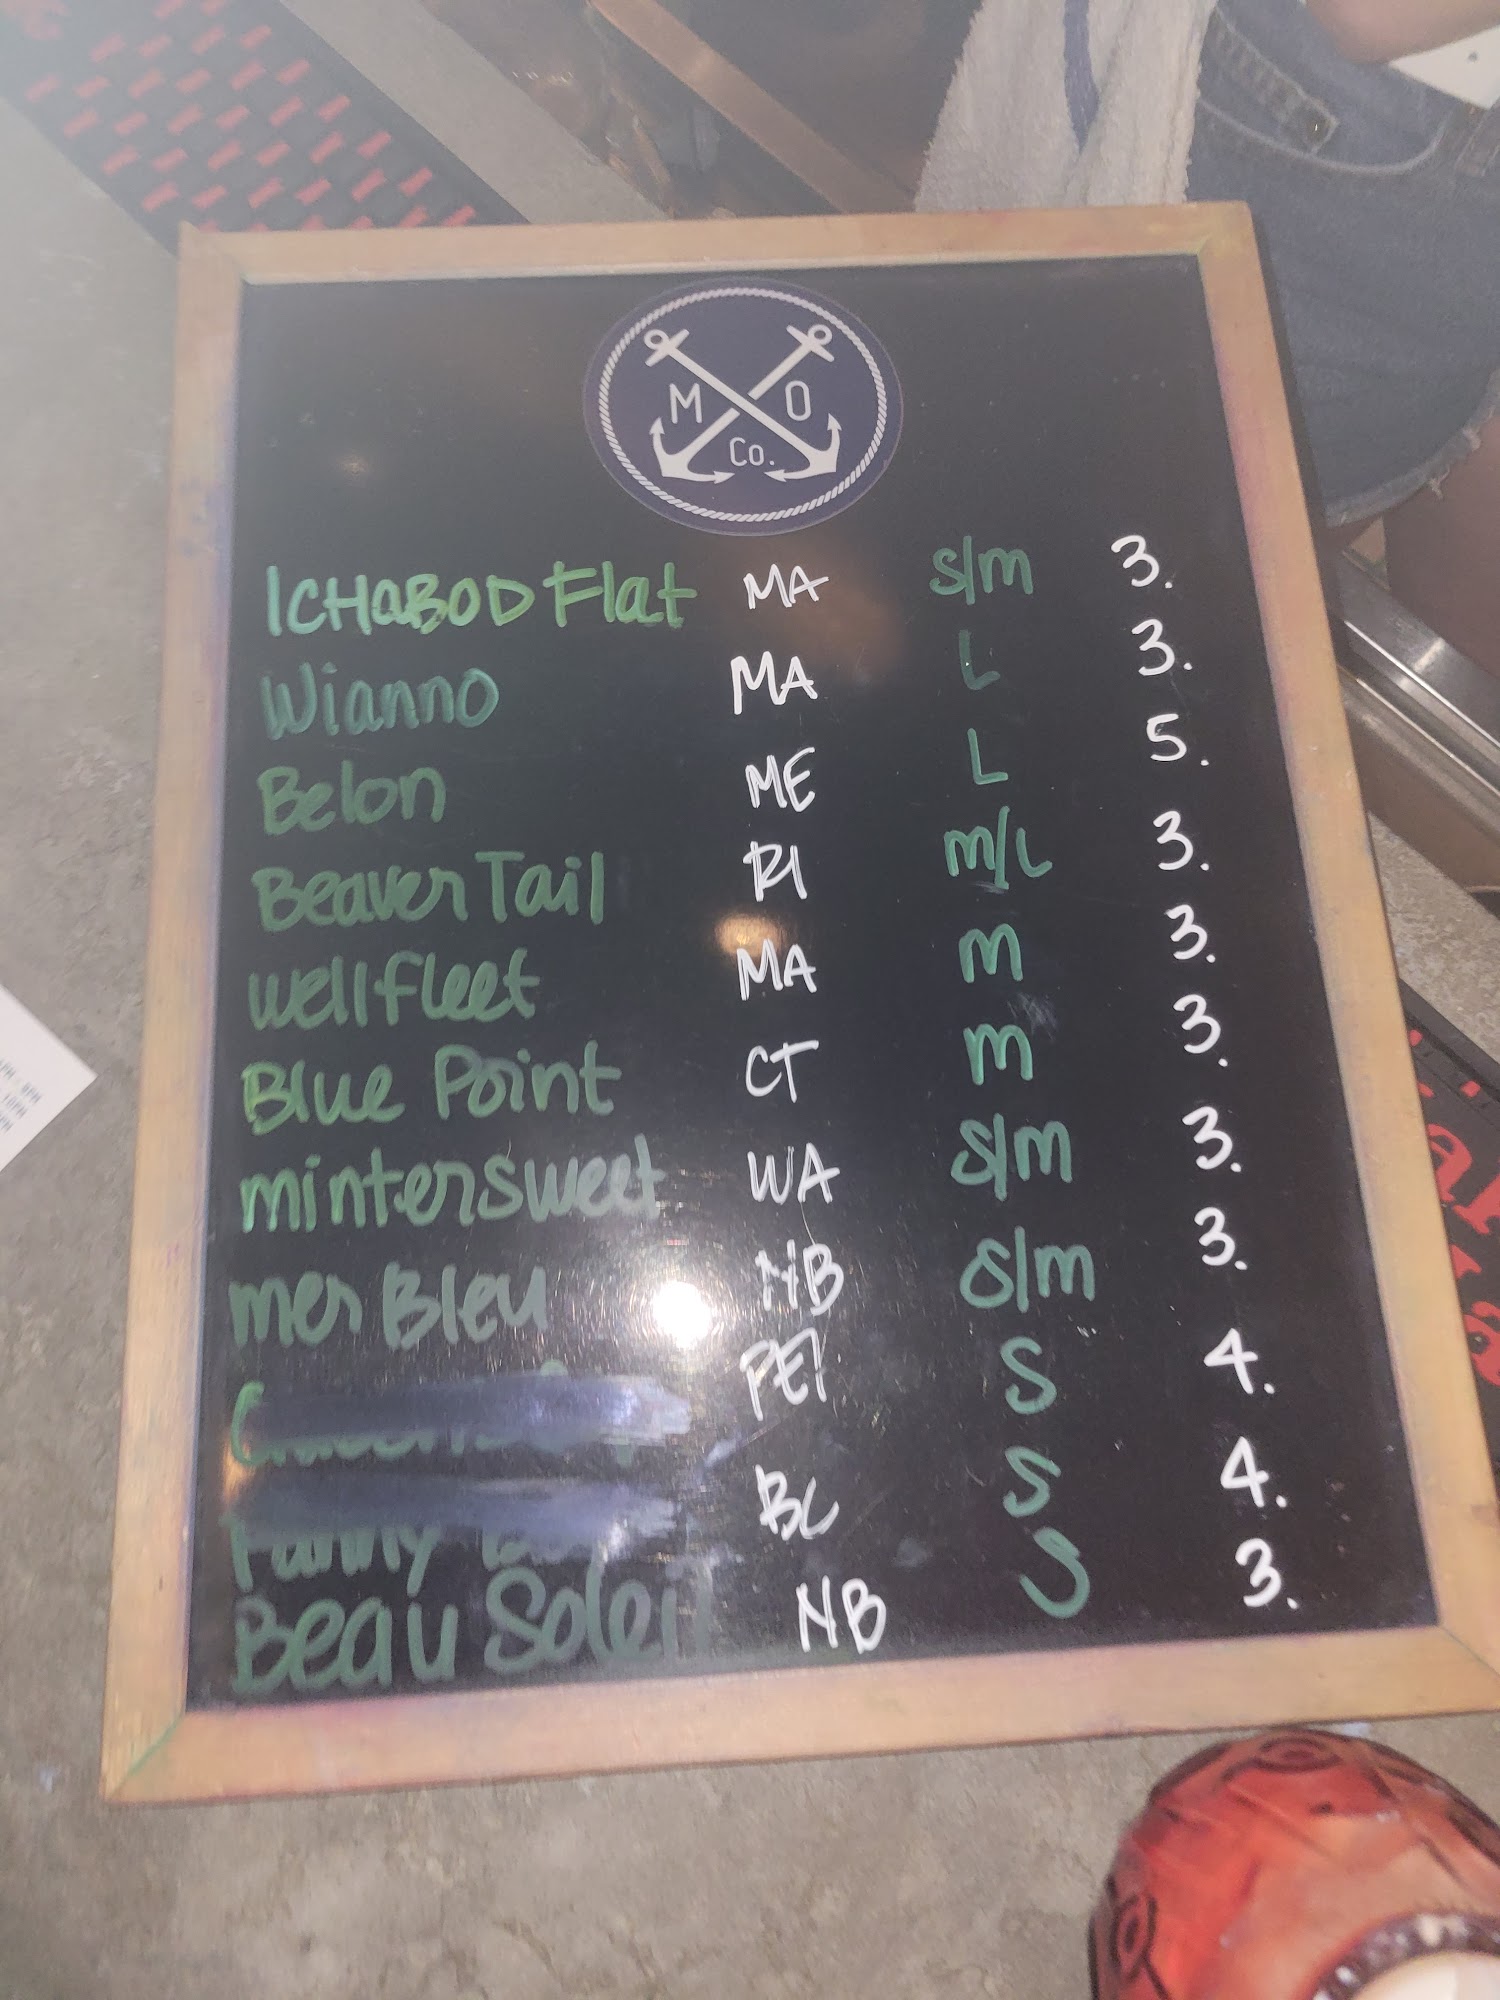 M O
Co.
ICHABOD Flat MA S/m 3.
Wianno MA L 3.
Belon ME L 5.
Beaver Tail RI m/L 3.
wellfleet MA m 3.
Blue Point CT m 3.
minter sweet WA S/m 3.
mer Bleu NB S/m 3.
PEI S 4.
Fanny BC S 4.
Beau Soleil NB S 3.